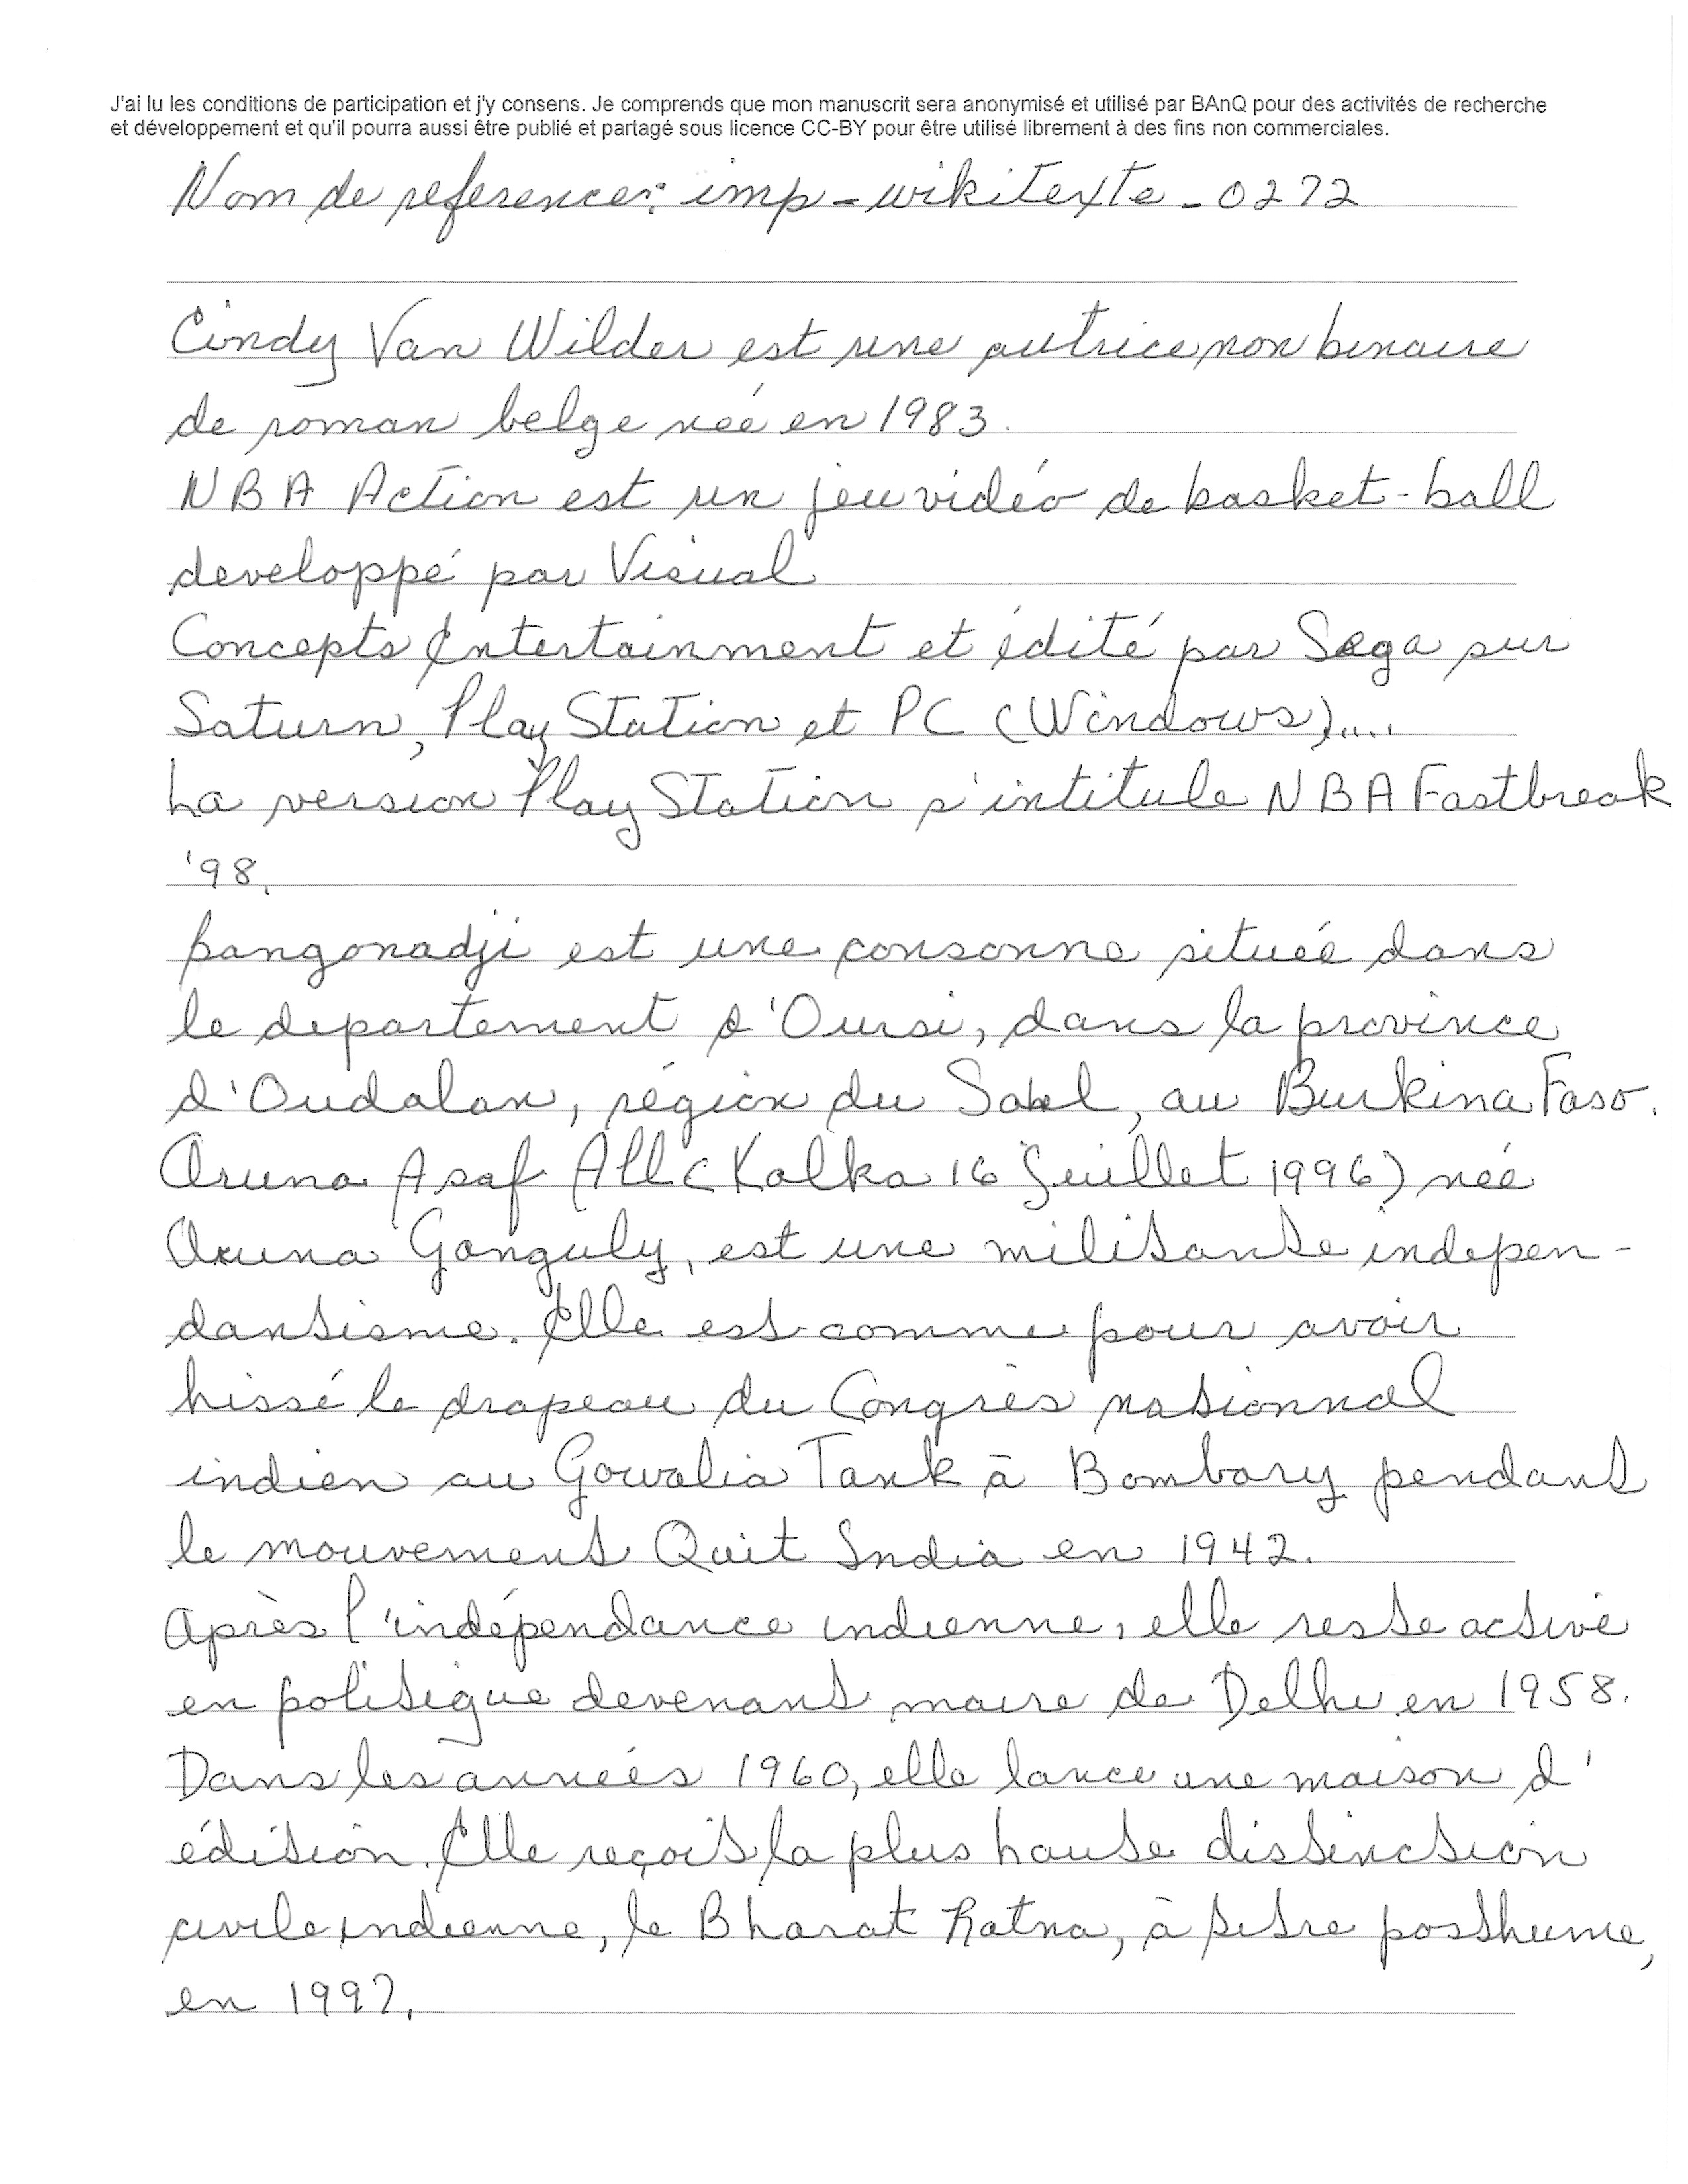 J'ai lu les conditions de participation et j'y consens. Je comprends que mon manuscrit sera anonymisé et utilisé par BAnQ pour des activités de recherche
et développement et qu'il pourra aussi être publié et partagé sous licence CC-BY pour être utilisé librement à des fins non commerciales.
Nom de reference: imp-wikitexte-0272
Cindy Van Wilder est une autrice non binaire
de roman belge née en 1983.
NBA Action est un jeu vidéo de basket-ball
developpé par Visual
Concepts Entertainment et édité par Sega sur
Saturn, PlayStation et PC (Windows)....
La version PlayStation s'intitule NBA Fastbreak
'98.
pangonadji est une consonne située dans
le departement d'Oursi, dans la province
d'Oudalan, région du Sahel, au Burkina Faso.
Aruna Asaf Ali (Kalka 16 Juillet 1996) née
Aruna Ganguly, est une militante indepen-
dantisme. Elle est comme pour avoir
hissé le drapeau du Congrès nationnal
indien au Gowalia Tank à Bombary pendant
le mouvement Quit India en 1942.
Après l'indépendance indienne, elle reste active
en politique devenant maire de Delhi en 1958.
Dans les années 1960, elle lance une maison d'
édition. Elle reçoit la plus haute distinction
civile indienne, le Bharat Ratna, à titre posthume,
en 1997.